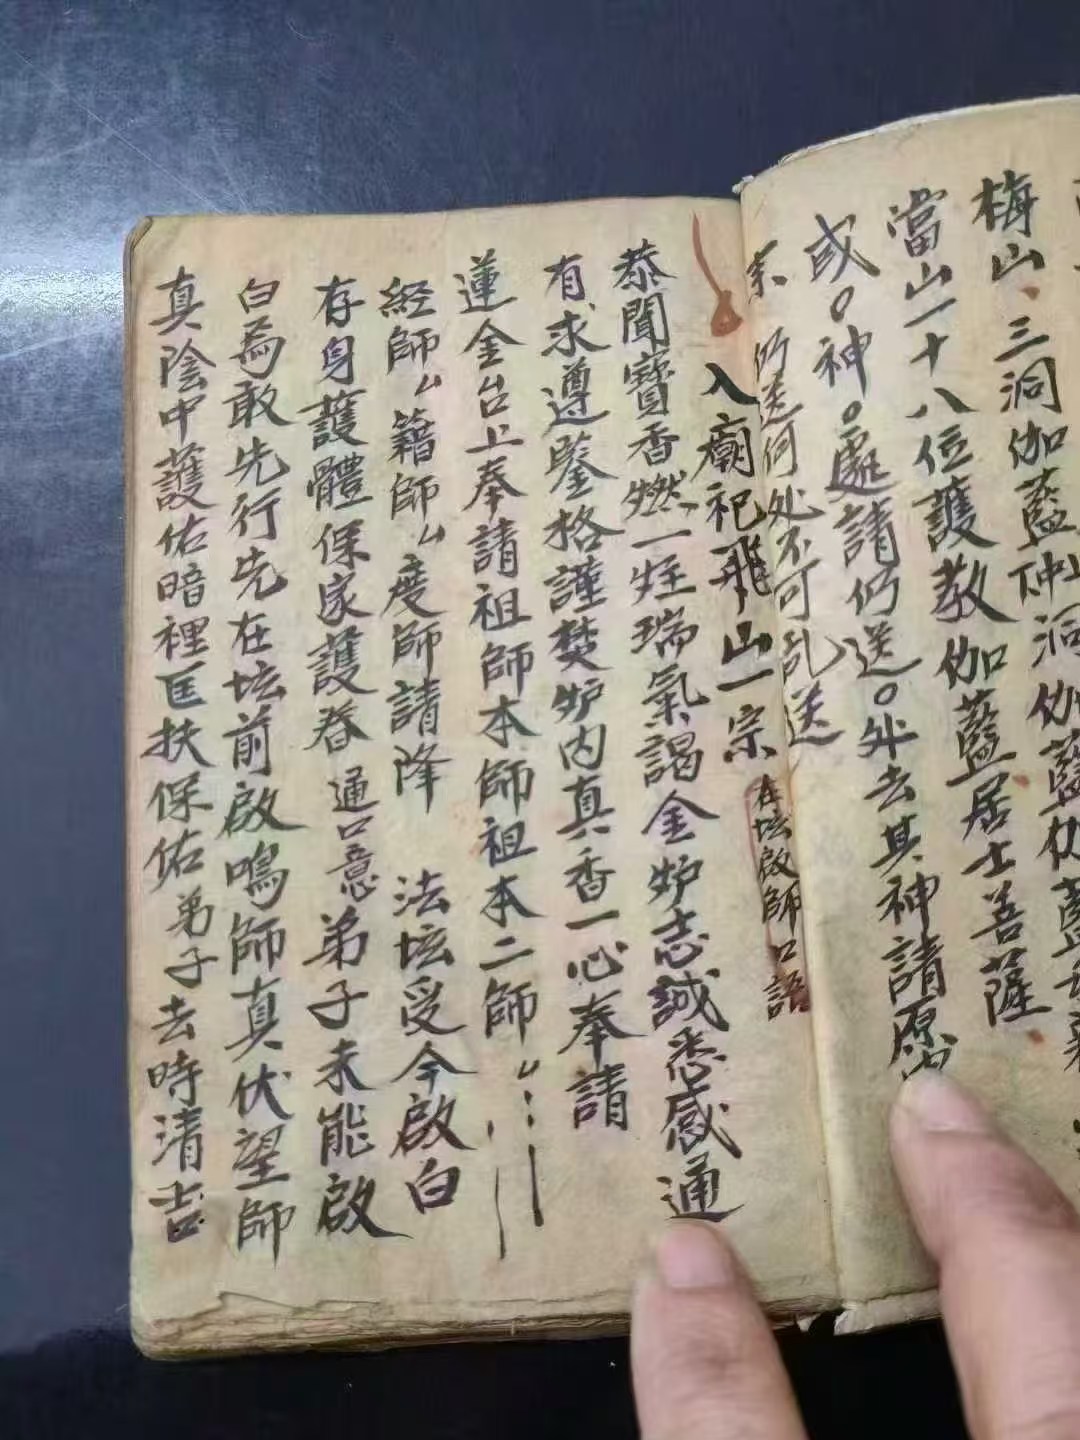 梅山、三洞伽藍仙洞伽藍
當山一十八位護教伽藍居士菩薩
或〇神〇處請仍送〇外去其神請原
仍送何处不可乱送
入廟祀飛山一宗 在坛啟師口語
恭聞寶香燃一炷瑞氣謁金炉志誠悉感通
有求遵鋻格謹焚炉内真香一心奉請
蓮金台上奉請祖師本師祖本二師〃
經師〃籍師〃度師請降 法坛受今啟白
存身護體保家護眷 通口意弟子未能啟
白為敢先行先在坛前啟鳴師真伏望師
真陰中護佑暗裡匡扶保佑弟子去時清吉